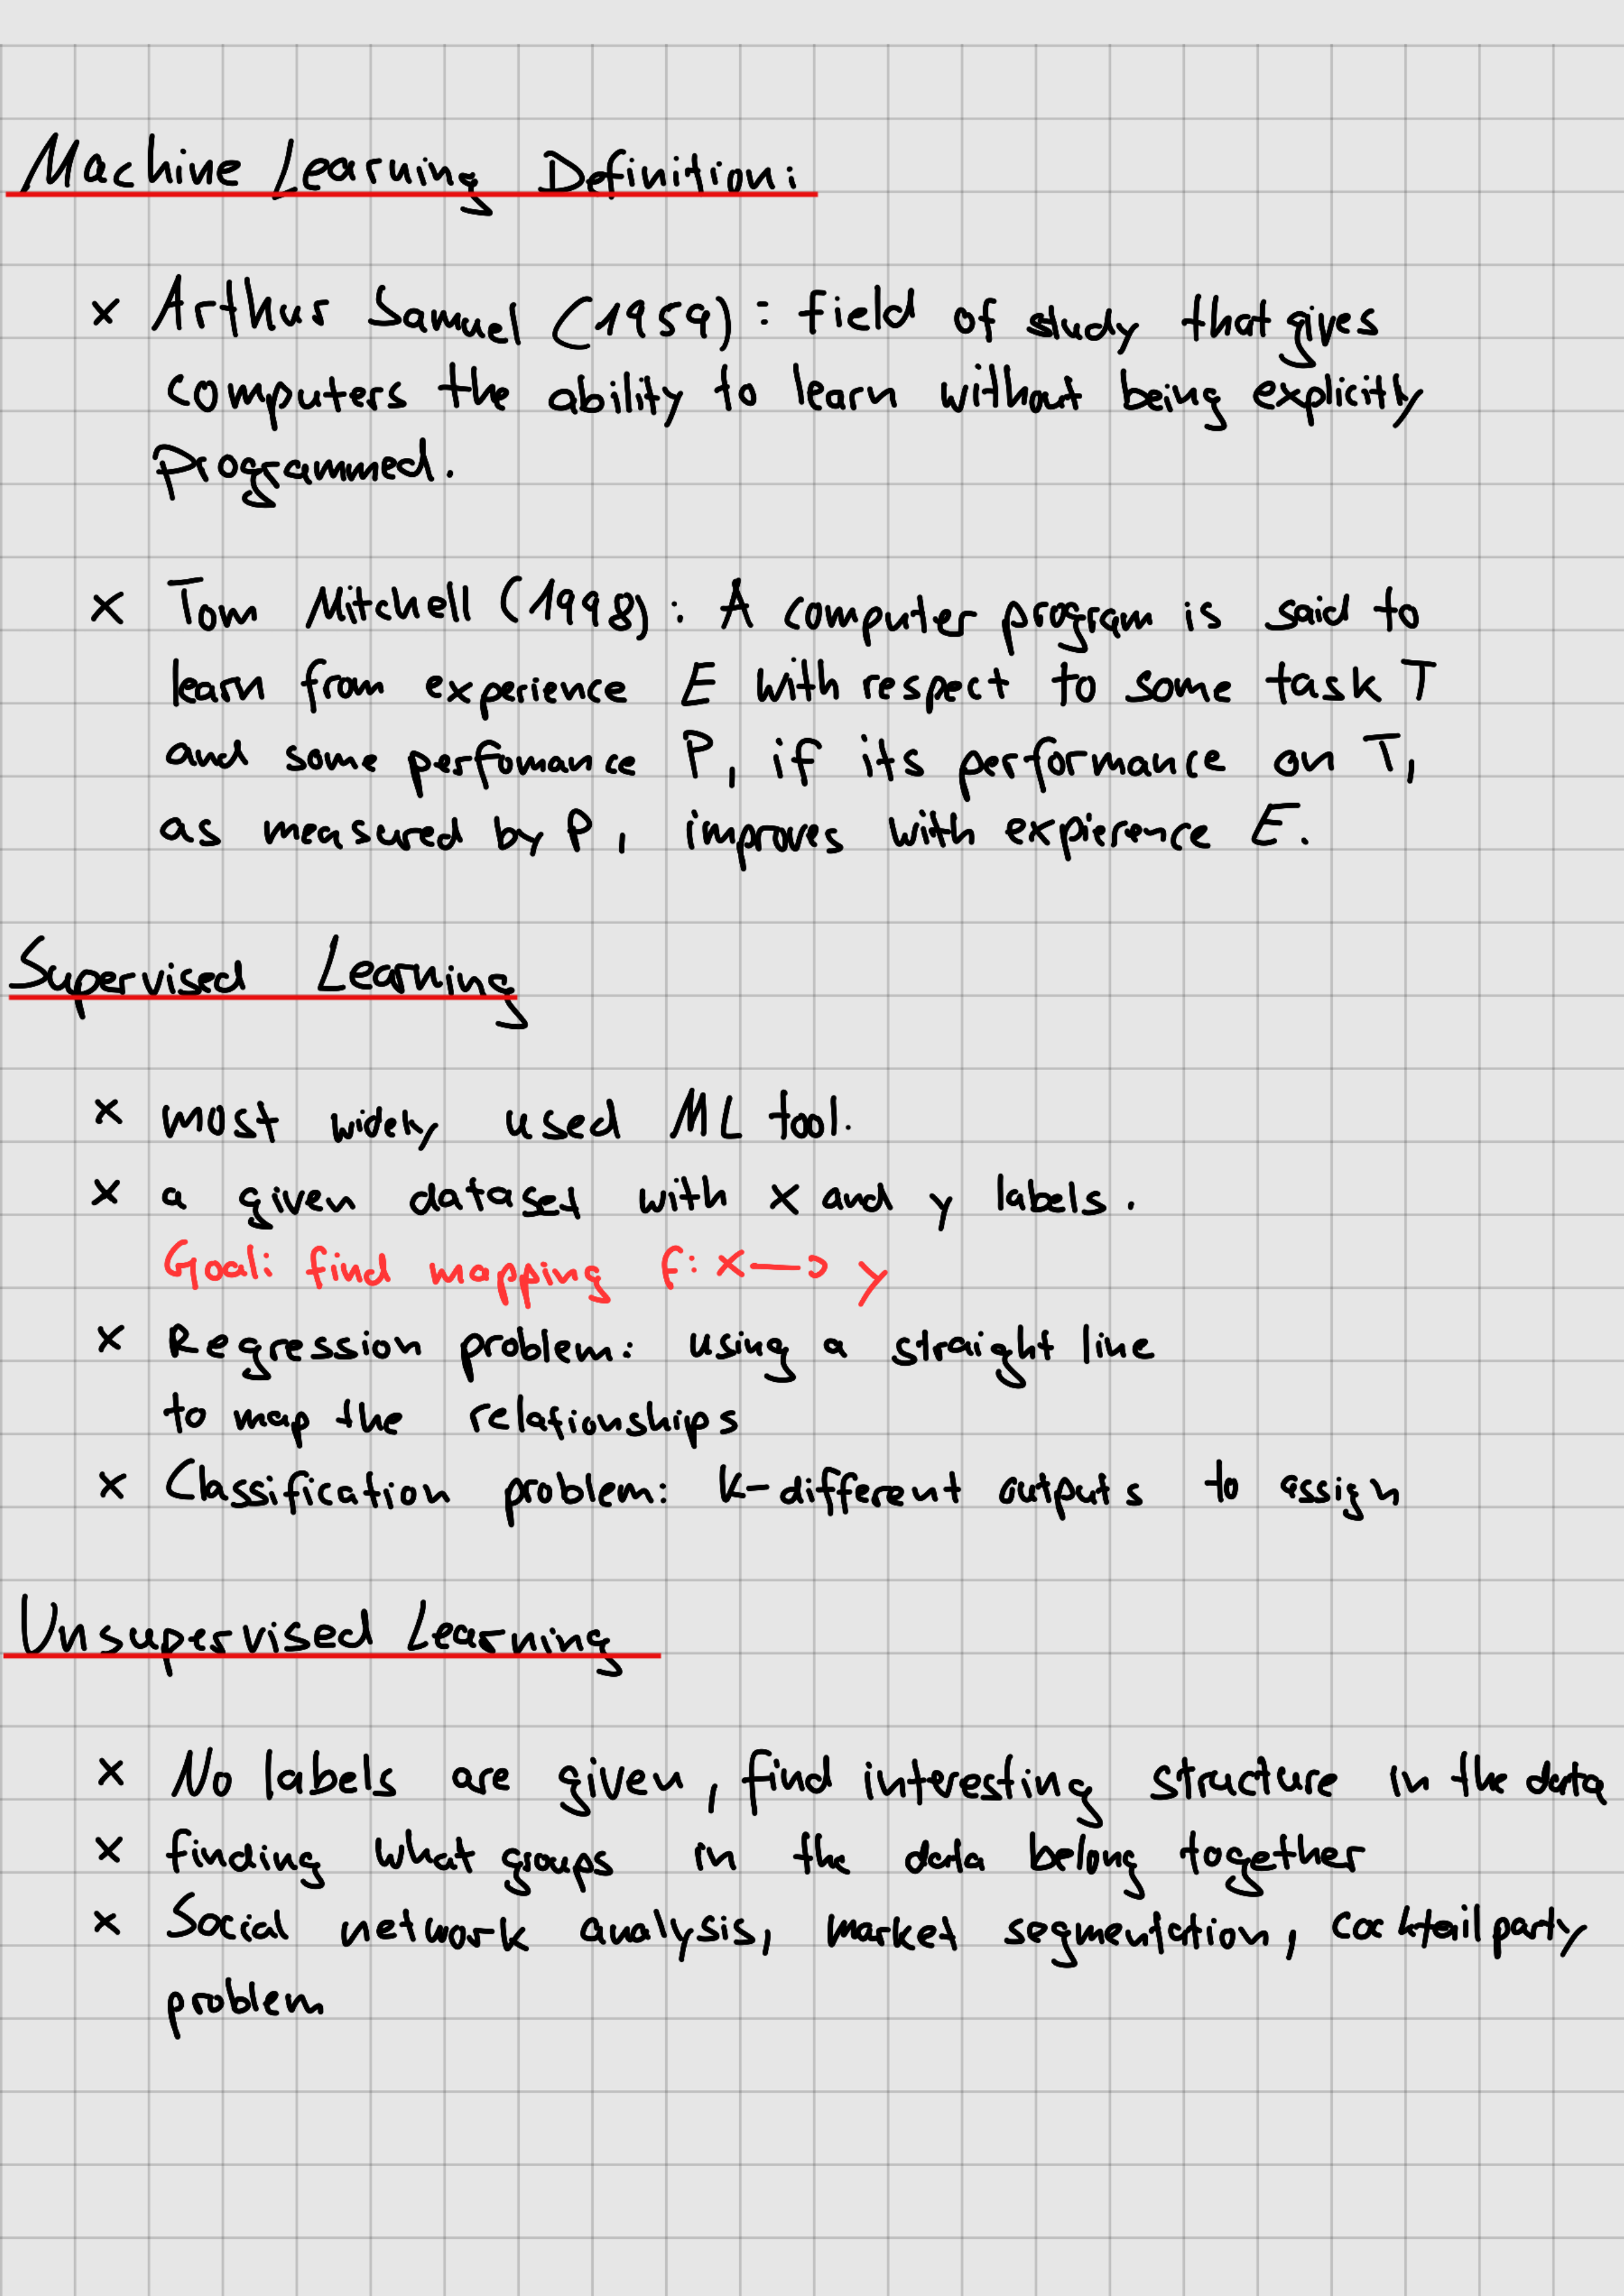 Machine Learning Definition:
x Arthur Samuel (1959): field of study that gives
computers the ability to learn without being explicitly
programmed.
x Tom Mitchell (1998): A computer program is said to
learn from experience E with respect to some task T
and some perfomance P, if its performance on T,
as measured by P, improves with expierence E.
Supervised Learning
x most widely used ML tool.
x a given dataset with x and y labels.
Goal: find mapping f: x → y
x Regression problem: using a straight line
to map the relationships
x Classification problem: k-different outputs to assign
Unsupervised Learning
x No labels are given, find interesting structure in the data
x finding what groups in the data belong together
x Social network analysis, market segmentation, cocktail party
problem